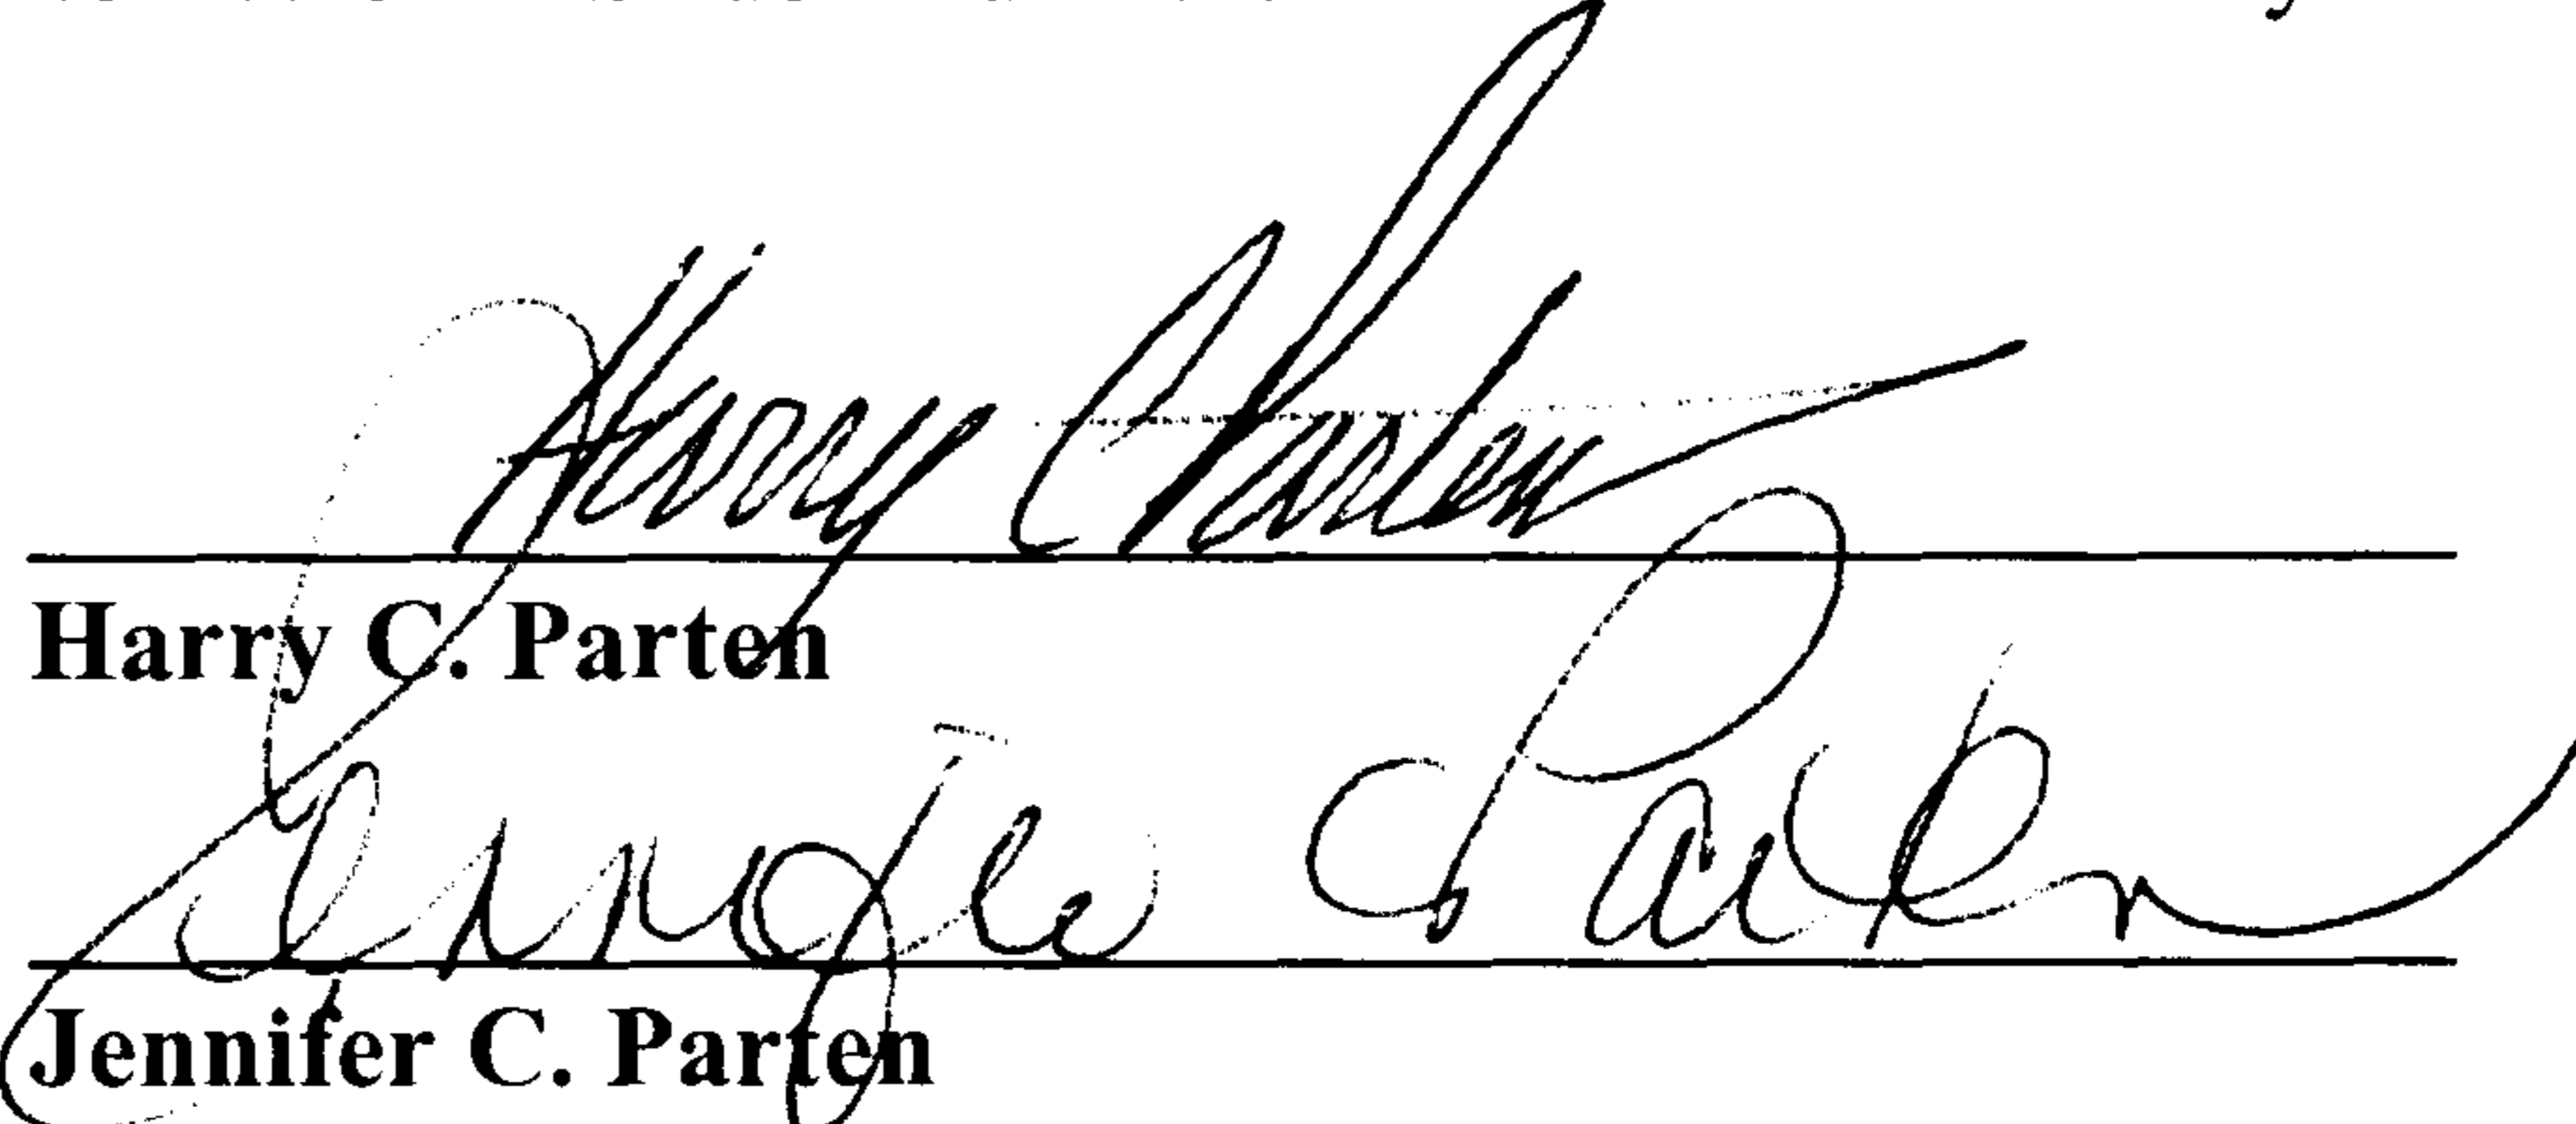 Harry C Parten
Harry C. Parten
Jennifer Parten
Jennifer C. Parten